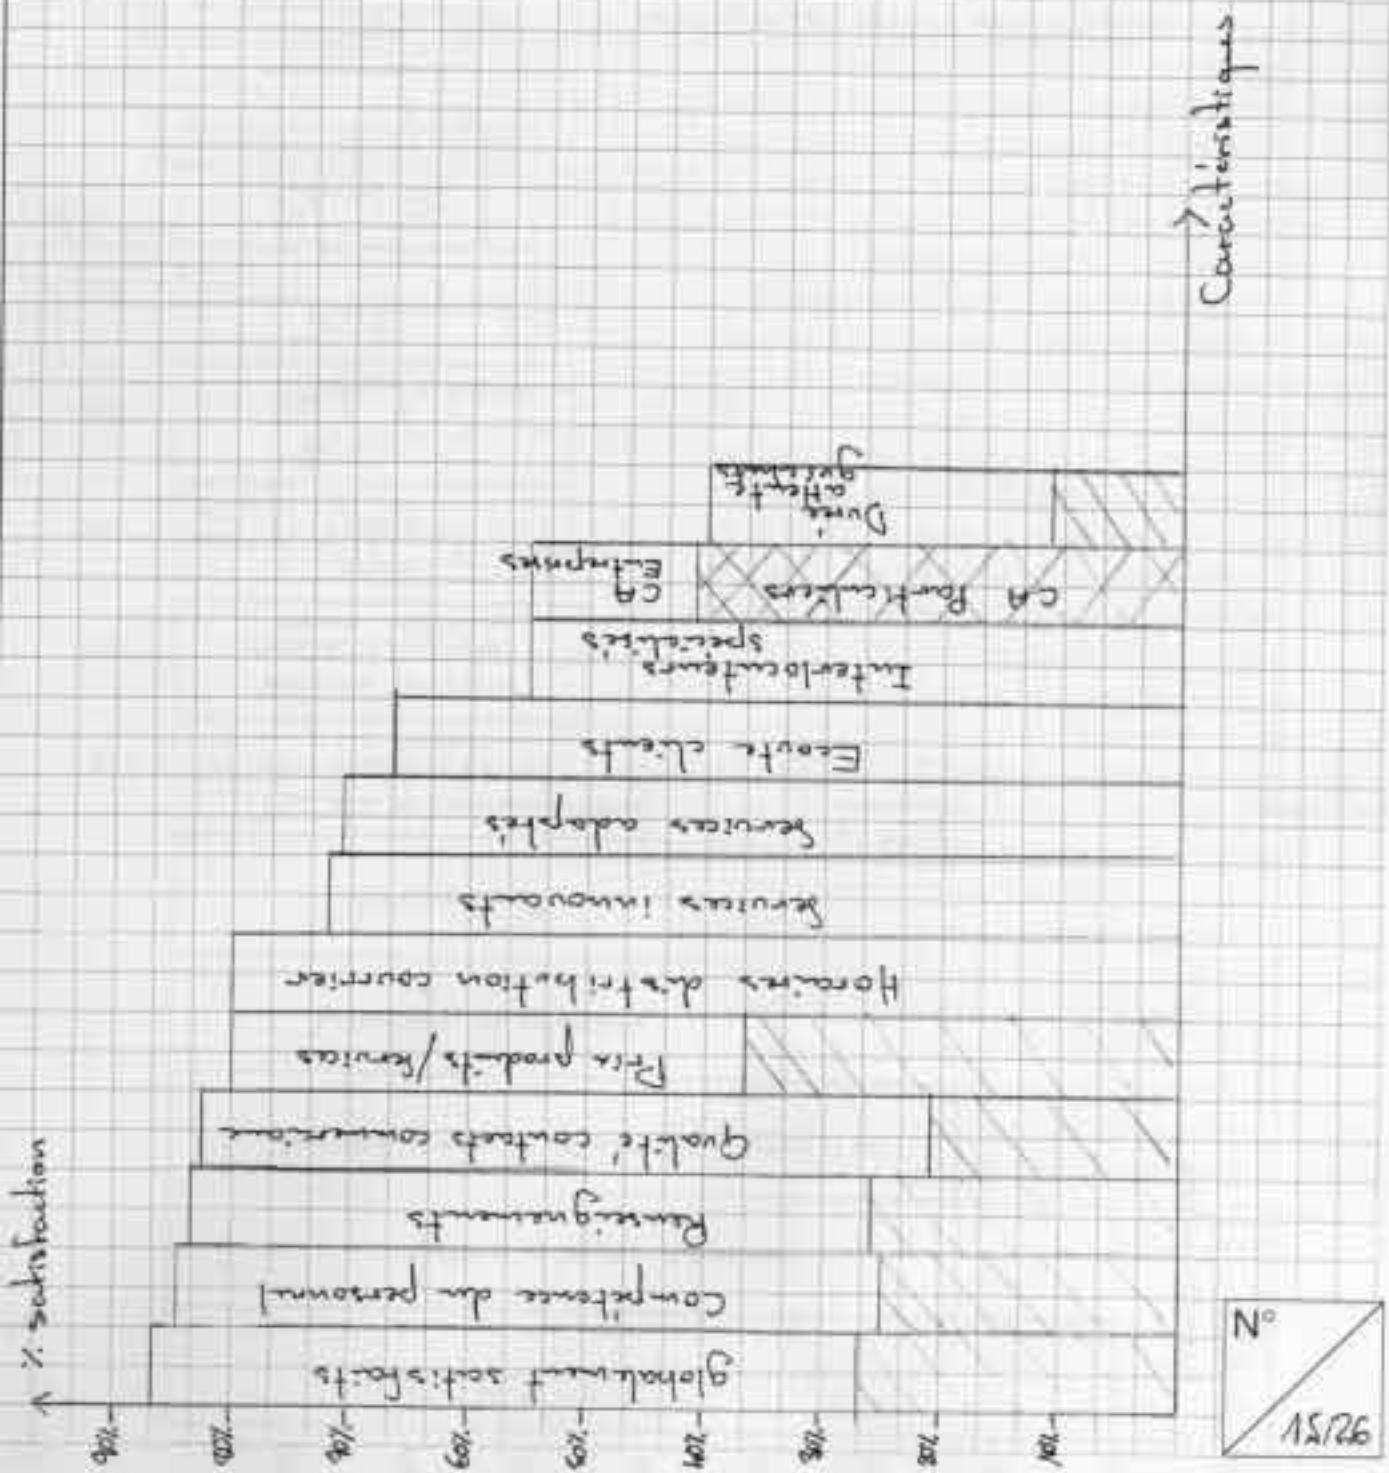 % satisfaction
90%
80%
70%
60%
50%
40%
30%
20%
10%
globalement satisfaits
Compétence du personnel
Renseignements
Qualité contacts commerciaux
Prix produits/services
Horaires distribution courrier
Services innovants
Services adaptés
Ecoute clients
Interlocuteurs
spécialisés
CA
Entreprises
CA Particuliers
Durée
attente
guichets
Caractéristiques
N°
15/26